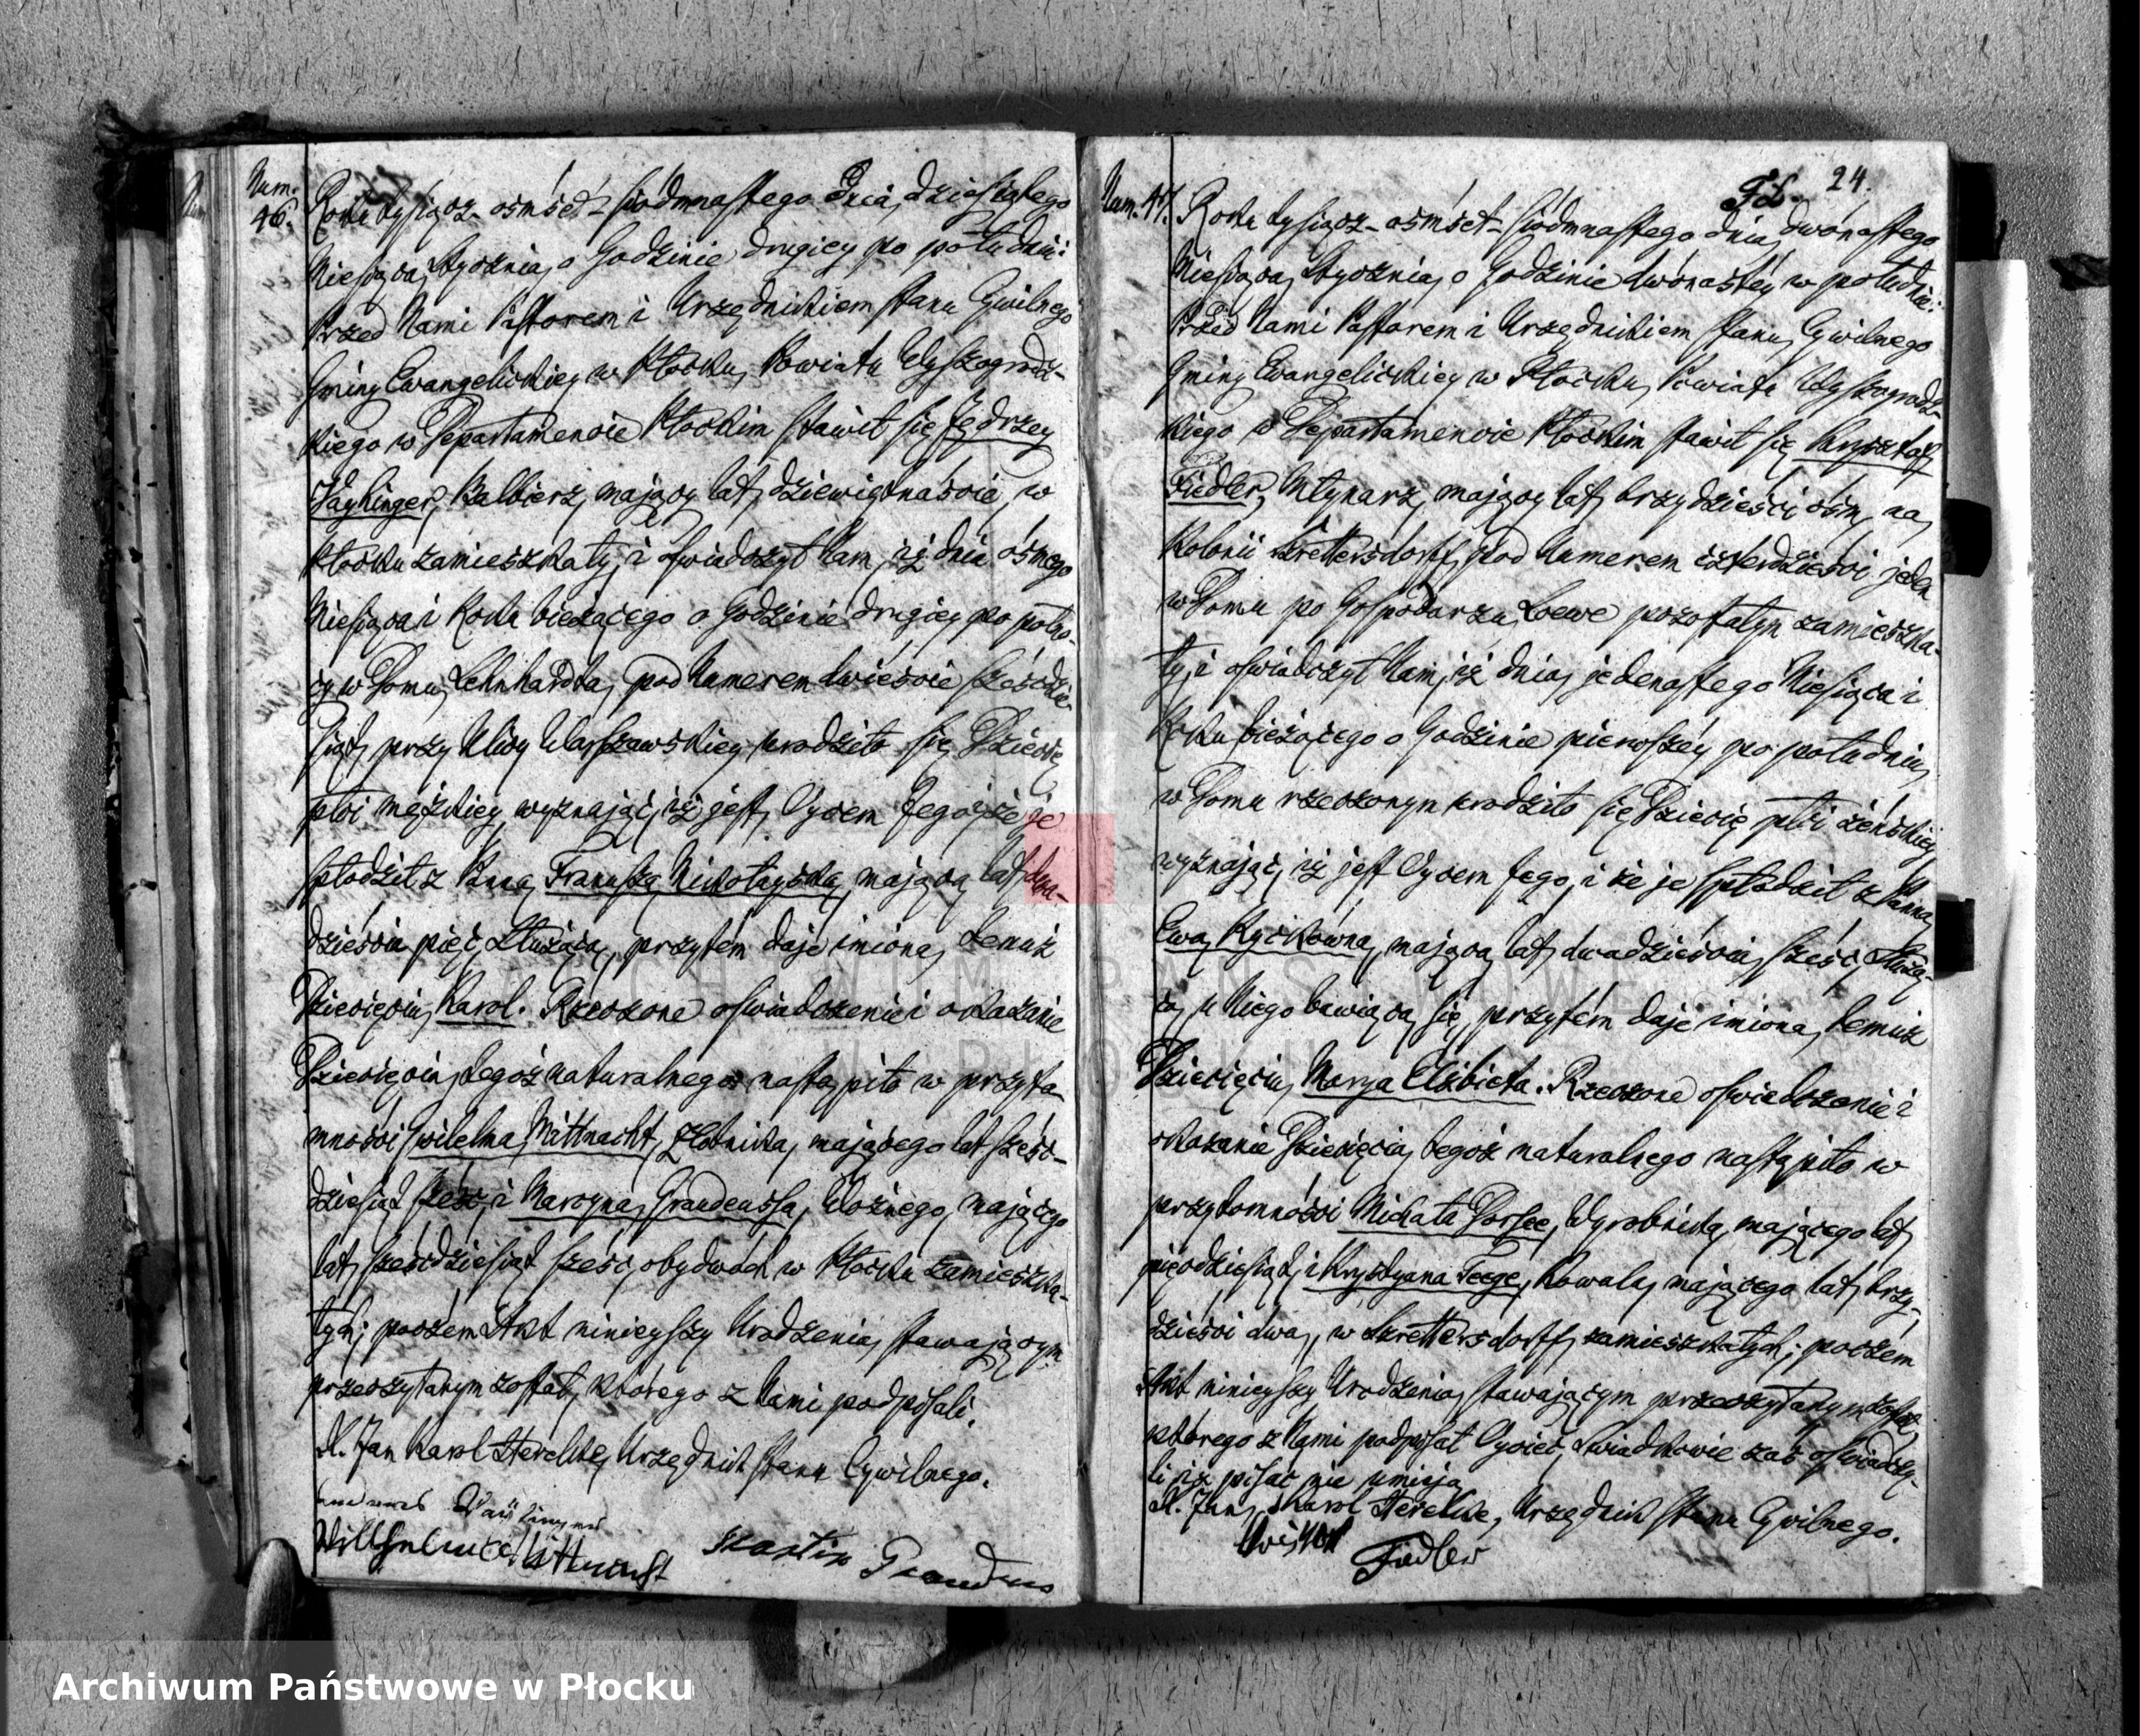 Num.
46.
Roku tysiącz-ośmset-siódmnastego Dnia dziesiątego
Miesiąca Stycznia o Godzinie drugiey po południu:
Przed Nami Pastorem i Urzędnikiem stanu Cywilnego
Gminy Ewangelickiey w Płocku, Powiatu Wyszogrodz-
kiego w Departamencie Płockim stawił się Jędrzey
Balbierz, maiący lat dziewiętnaście, w
Płocku zamieszkały, i oświadczył Nam, iż dnia ósmego
Miesiąca i Roku bieżącego o Godzinie drugiey po półno-
cy w Domu Lehnhardta, pod Numerem dwieście sześćdzie-
siąt, przy Ulicy Warszawskiey urodziło się Dziecię
płci męzkiey, wyznaiąc, iż iest Oycem Jego, i że je
spłodził z Panną Franciszką Mikołayską, maiącą lat dwa-
dzieścia pięć, Służącą, przytém daje imiona temuż
Dziecięciu, Karol. Rzeczone oświadczenie i okazanie
Dziecięcia, tegoż naturalnego nastąpiło w przyto-
mności Gwilelma Mittnacht, Złotnika, maiącego lat sześć-
dziesiąt sześć, i Marcyna Graudenssa, Woźnego, maiącego
lat sześćdziesiąt sześć, obydwóch w Płocku zamieszka-
łych; poczém Akt ninieyszy Urodzenia, stawaiącym
przeczytanym został, którego z Nami podpisali.
X. Jan Karol Hevelke, Urzędnik stanu Cywilnego.
Willhelm Mittnacht Martin Graudens
24.
Num. 47.
Roku tysiącz-ośmset-siódmnastego dnia dwónastego
Miesiąca Stycznia, o Godzinie dwónastéy w południe:
Przed Nami Pastorem i Urzędnikiem stanu Cywilnego
Gminy Ewangelickiey w Płocku, Powiatu Wyszogrodz-
kiego w Departamencie Płockim stawił się Krysztof
Fiedler, Młynarz, maiący lat trzydzieści ośm, na
Kolonii Szrettersdorff, pod Numerem czterdzieści jeden
w Domu po Gospodarzu Loewe pozostałym zamieszka-
ły, i oświadczył Nam, iż dnia jedenastego Miesiąca i
Roku bieżącego o Godzinie pierwszéy po południu,
w Domu rzeczonym urodziło się Dziecię płci żeńskiey
wyznaiąc, iż jest Oycem Jego, i że je spłodził z Panną
Ewą Kycikówną, maiącą lat dwadzieścia sześć, Służą-
cą, u Niego bawiącą się, przytém daje imiona temuż
Dziecięciu, Marya Elżbieta. Rzeczone oświadczenie i
okazanie Dziecięcia, tegoż naturalnego nastąpiło w
przytomności Michała Wyrobnika, maiącego lat
pięćdziesiąt, i Krystyana Feege, Kowala, maiącego lat trzy-
dzieści dwa, w Szrettersdorff zamieszkałych; poczém
Akt ninieyszy Urodzenia, stawaiącym przeczytanym został,
którego z Nami podpisał Oyciec, Świadkowie zaś oświadczy-
li iż pisać nie umieją
X. Jan Karol Hevelke, Urzędnik stanu Cywilnego.
Fidler
Archiwum Państwowe w Płocku